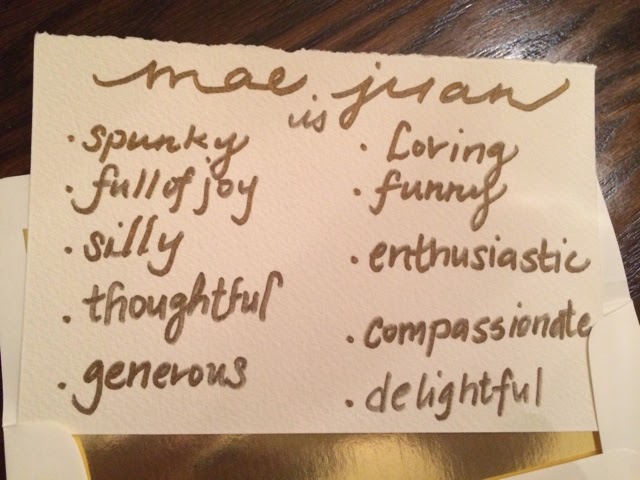 mae juan
is
· spunky
· full of joy
· silly
· thoughtful
· generous
· Loving
· funny
· enthusiastic
· compassionate
· delightful